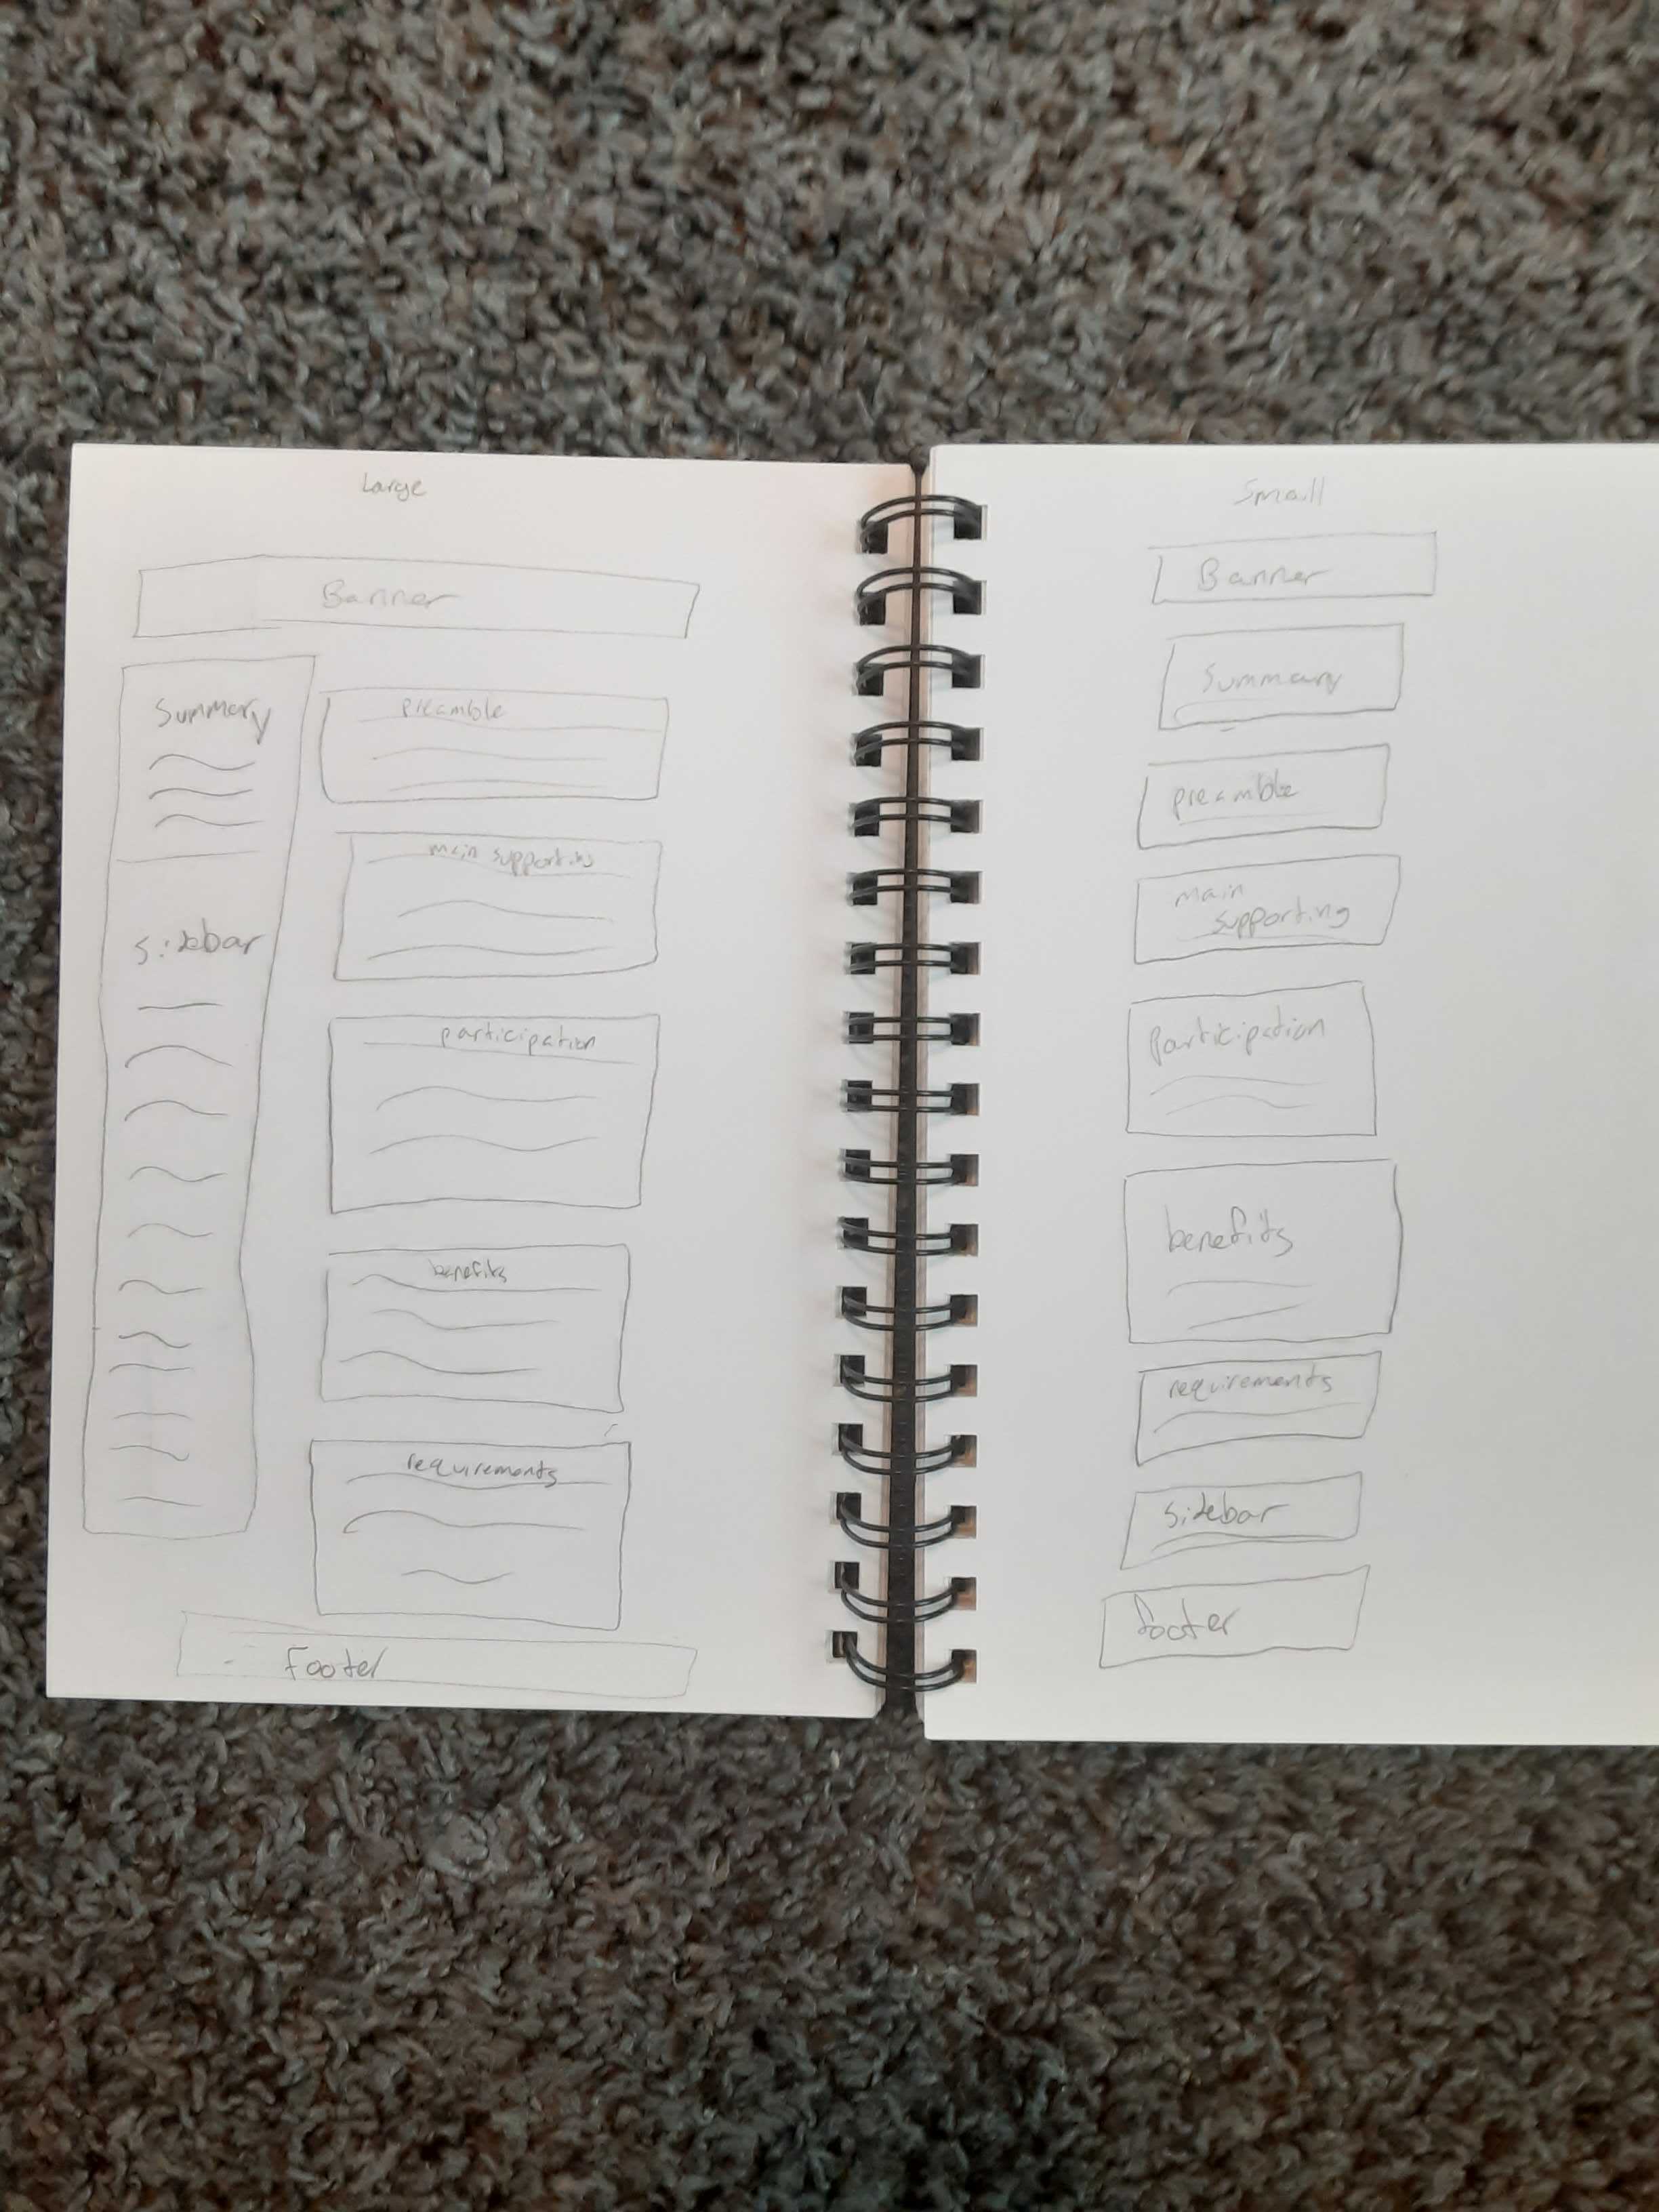 Large
Banner
Summary
sidebar
preamble
main supporting
participation
benefits
requirements
Footer
Small
Banner
Summary
preamble
main
supporting
Participation
benefits
requirements
sidebar
footer